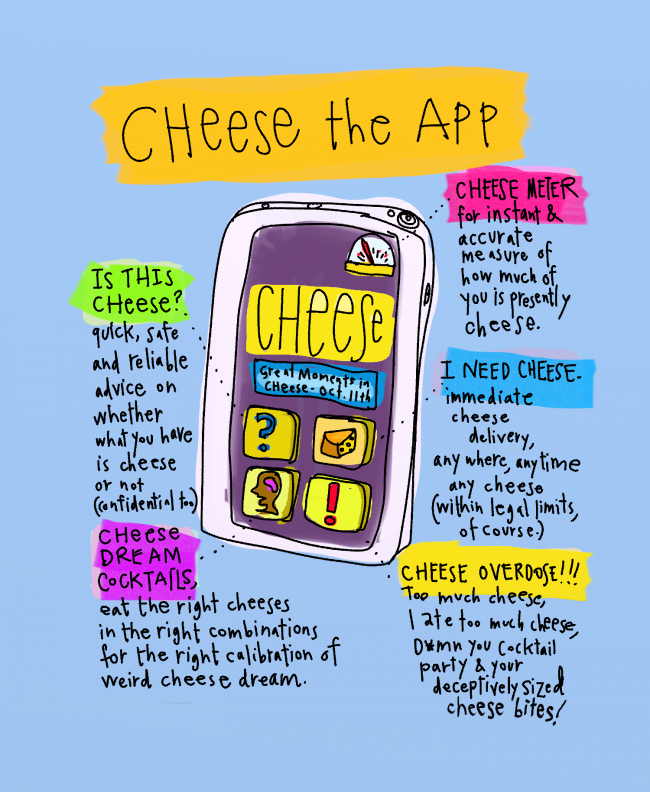 CHEESE the APP
CHEESE METER
for instant &
accurate
measure of
how much of
you is presently
cheese.
IS THIS
CHEESE?
quick, safe
and reliable
advice on
whether
what you have
is cheese
or not
(confidential too)
CHEESE
Great Moments in
CHeese - Oct. 11th
?
!
I NEED CHEESE.
immediate
cheese
delivery,
any where, anytime
any cheese
(within legal limits,
of course.)
CHeese
DREAM
COCKTAILS,
eat the right cheeses
in the right combinations
for the right calibration of
weird cheese dream.
CHEESE OVERDOSE!!!
Too much cheese,
I ate too much cheese,
D*mn you cocktail
party & your
deceptively sized
cheese bites!